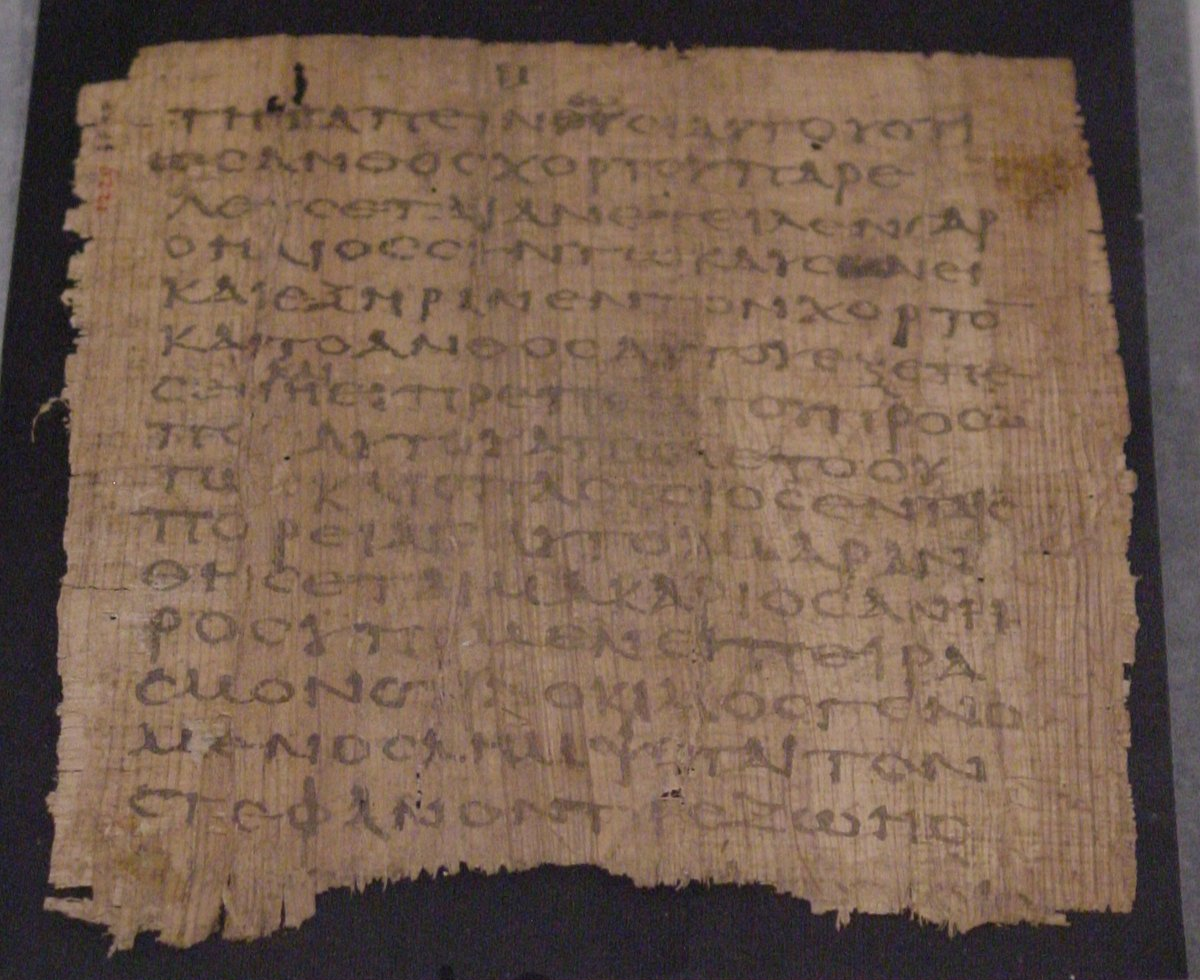 ΤΗΤΑΠΕΙΝΩCΙΑΥΤΟΥΟΤΙ
ΩCΑΝΘΟCΧΟΡΤΟΥΠΑΡΕ
ΛΕΥCΕΤΑΙΑΝΕΤΕΙΛΕΝΓΑΡ
ΟΗΛΙΟCCΥΝΤΩΚΑΥCΩΝΕΙ
ΚΑΙΕΞΗΡΑΝΕΝΤΟΝΧΟΡΤΟ̅
ΚΑΙΤΟΑΝΘΟCΑΥΤΟΥΕΞΕΠΕ
CΕΝΚΑΙΗΕΥΠΡΕΠΕΙΑΤΟΥΠΡΟCΩ
ΠΟΥΑΥΤΟΥΑΠΩΛΕΤΟΟΥ
ΤΩCΚΑΙΟΠΛΟΥCΙΟCΕΝΤΑΙC
ΠΟΡΕΙΑΙCΑΥΤΟΥΜΑΡΑΝ
ΘΗCΕΤΑΙΜΑΚΑΡΙΟCΑΝΗ
ΡΟCΥΠΟΜΕΝΕΙΠΕΙΡΑ
CΜΟΝΟΤΙΔΟΚΙΜΟCΓΕΝΟ
ΜΕΝΟCΛΗΜΨΕΤΑΙΤΟΝ
CΤΕΦΑΝΟΝΤΗCΖΩΗC